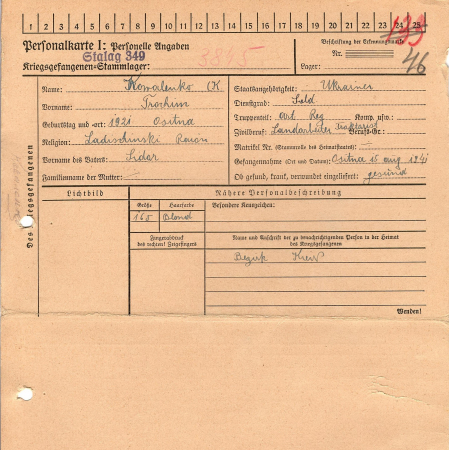 1 2 3 4 5 6 7 8 9 10 11 12 13 14 15 16 17 18 19 20 21 22 23 24 25
Personalkarte I: Personelle Angaben
Kriegsgefangenen-Stammlager: Stalag 349
Beschriftung der Erkennungsmarke
Nr.
133
46
Lager:
Des Kriegsgefangenen
Name: Kowalenko (K.
Vorname: Trochim
Geburtstag und -ort: 1921 Ositna
Religion: Ladischinski Raion
Vorname des Vaters: Sidor
Familienname der Mutter: ÷
Staatsangehörigkeit: Ukrainer
Dienstgrad: Sold
Truppenteil: art. Reg Komp. usw.:
Zivilberuf: Landarbeiter Traktorist Berufs-Gr.:
Matrikel Nr. (Stammrolle des Heimatstaates): ÷
Gefangennahme (Ort und Datum): Ositna 15 aug 1941
Ob gesund, krank, verwundet eingeliefert: gesund
Lichtbild
Nähere Personalbeschreibung
Größe Haarfarbe Besondere Kennzeichen:
165 blond
Fingerabdruck
des rechten! Zeigefingers
Name und Anschrift der zu benachrichtigenden Person in der Heimat
des Kriegsgefangenen
Bezirk Kiew
Wenden!